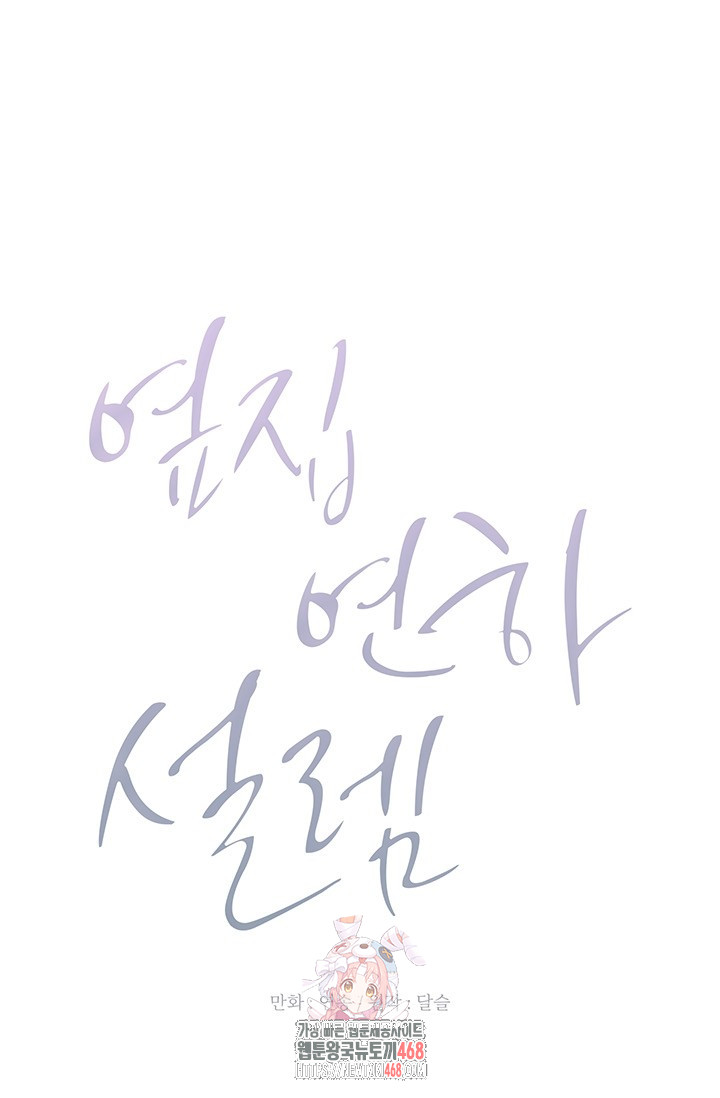 옆집
연하
설렘
만화 : 연슬 원작 : 달슬
가장 빠른 웹툰제공사이트
웹툰왕국뉴토끼468
HTTPS://NEWTOKI468.COM